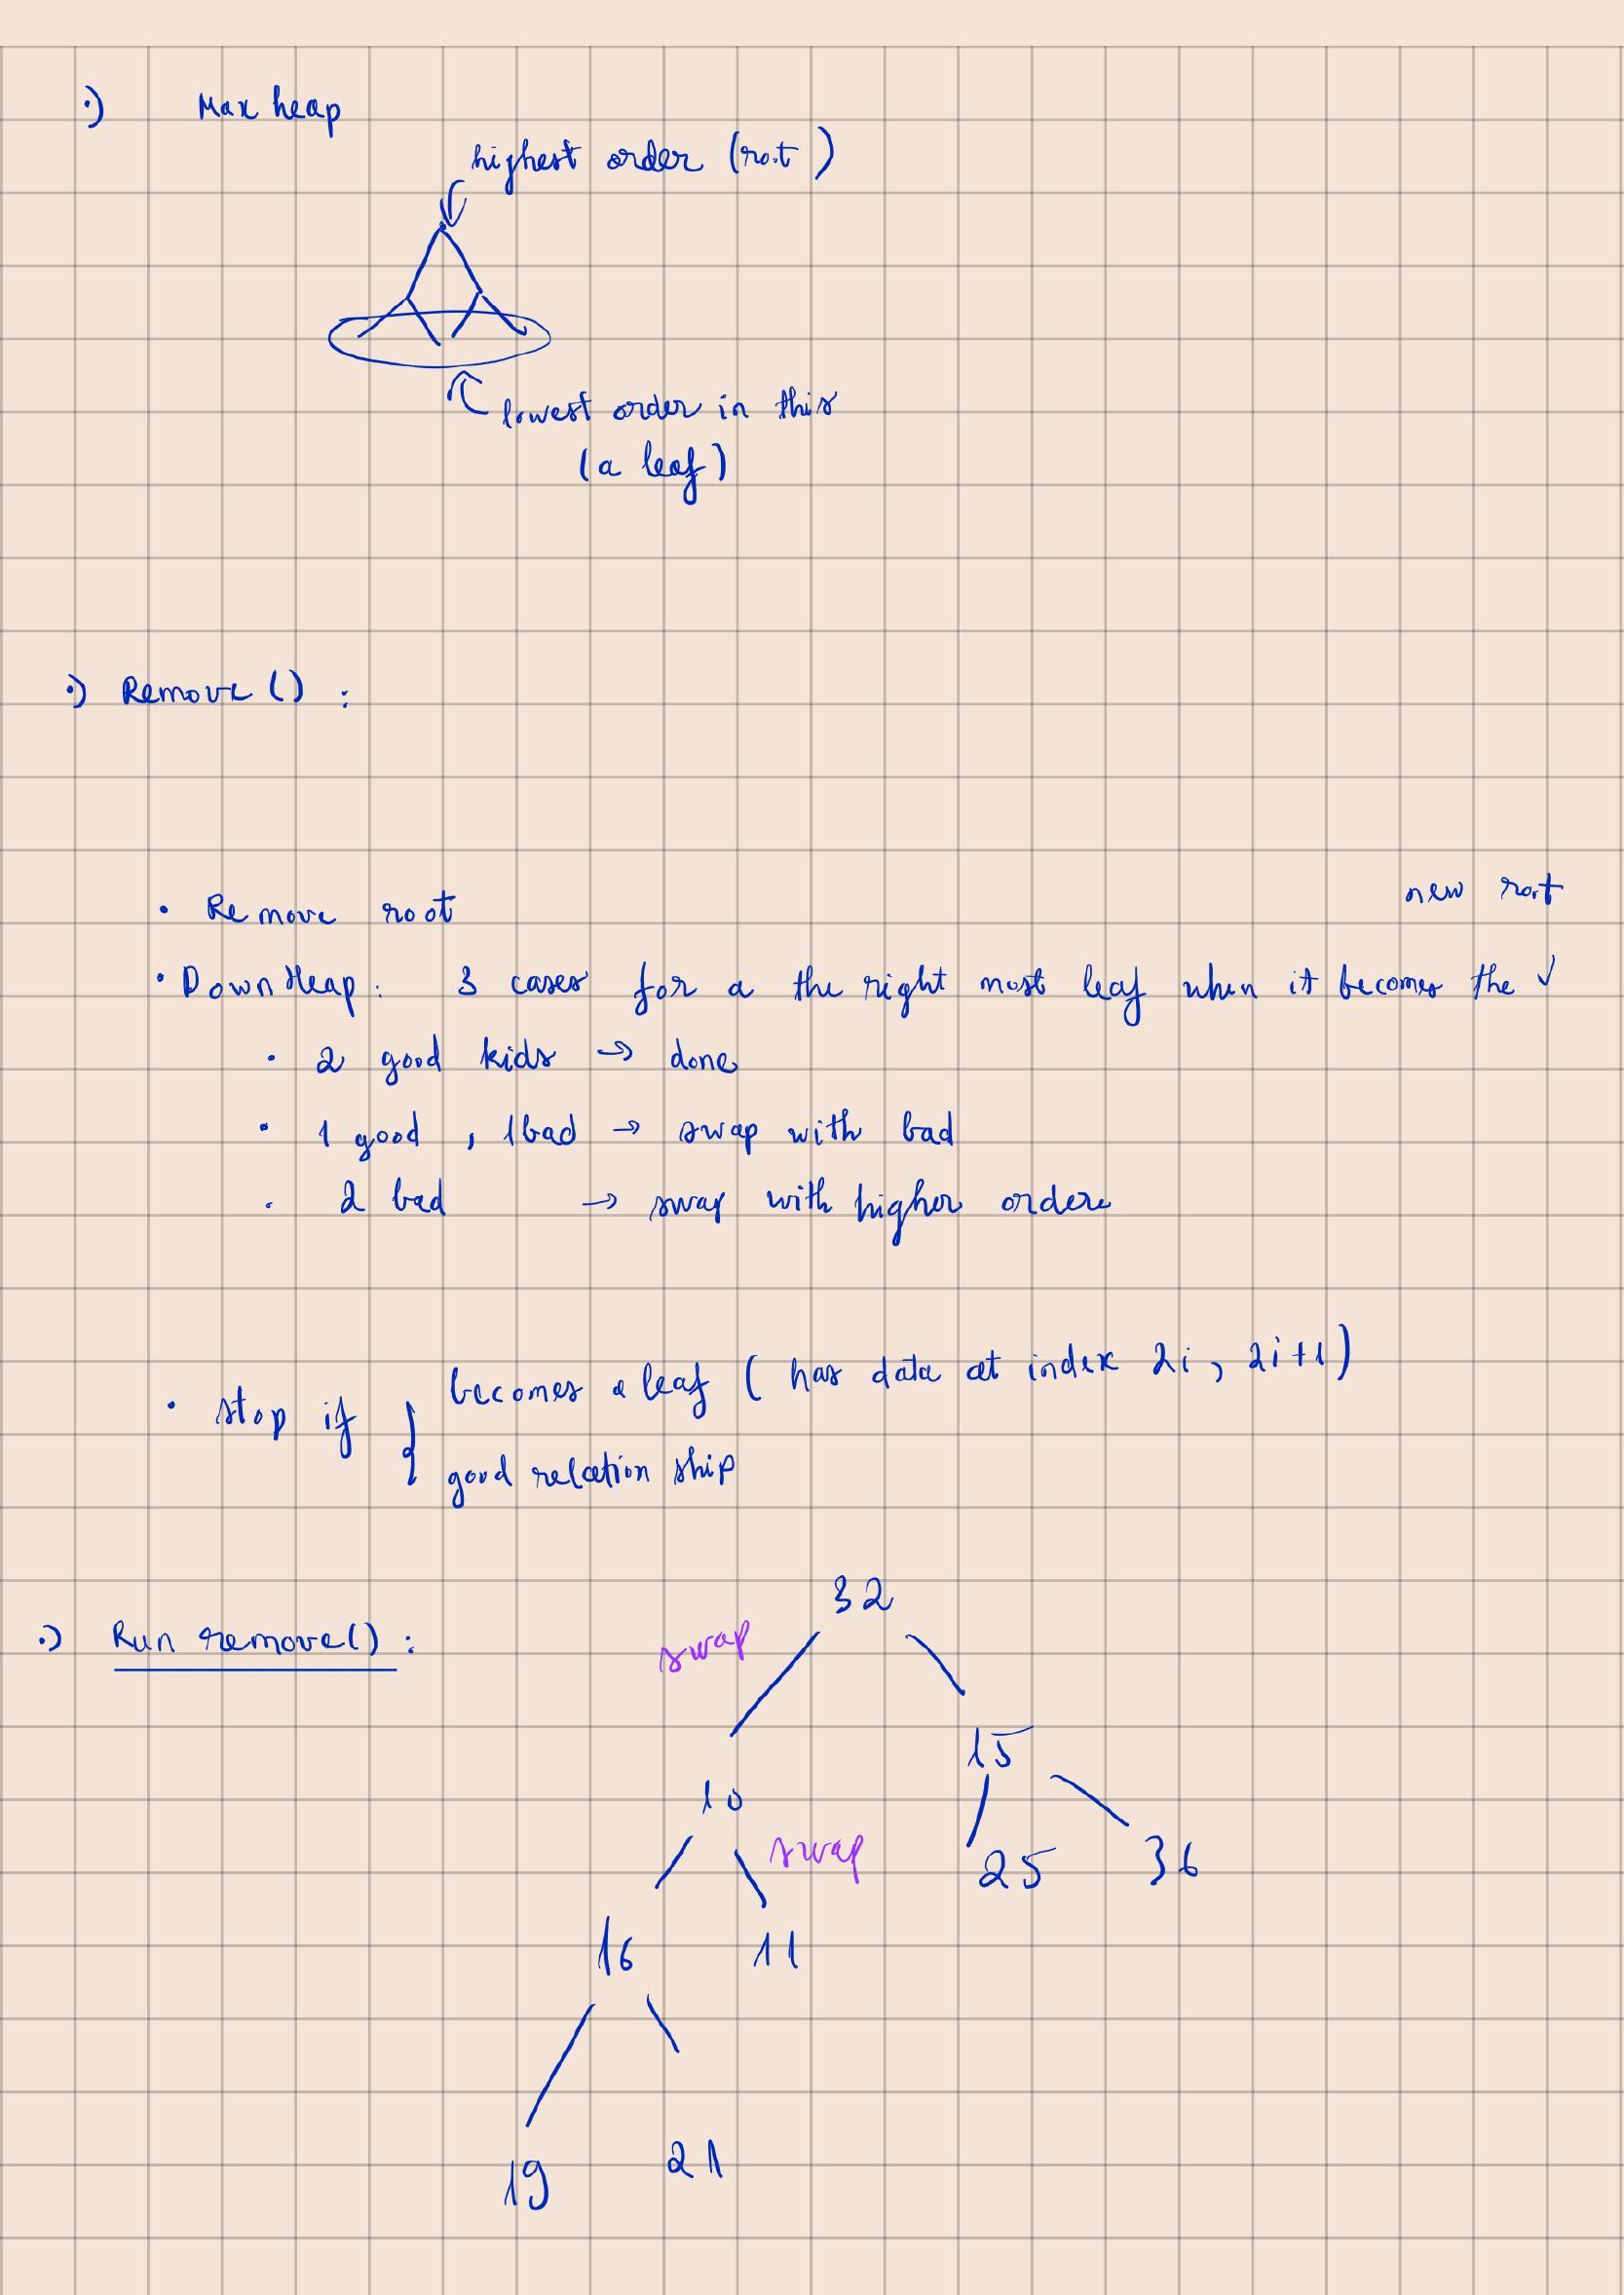 ·) Max heap
highest order (root)
lowest order in this
(a leaf)
·) Remove () :
• Remove root
new root
• Down Heap : 3 cases for a the right most leaf when it becomes the √
• 2 good kids → done
• 1 good , 1 bad → swap with bad
• 2 bad → swap with higher order
• stop if { becomes a leaf ( has data at index 2i , 2i+1 )
good relation ship
·) Run remove() :
32
swap
15
10
swap
25 36
16 11
19 21